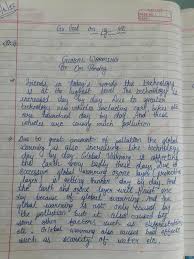 Global Warming
Friends in today's words the technology
is at the highest level. The technology is
increased day by day due to greater
technology new vehicles including cars, bikes etc
are launched day by day. And these
vehicles are causing much pollution.
Due to great amount of pollution the global
warming is also increasing the technology
day by day. Global Warming is affecting
the earth
excessive global warming ozone layer protecting
layer is getting thinner day by day. And
the earth and ozone layer will
day because of global warming. And the
global warming is not only caused by
the pollution but it is also caused by
some other sources such as deforestation
etc. Global warming also causes bad effects
such as scarcity of water etc.